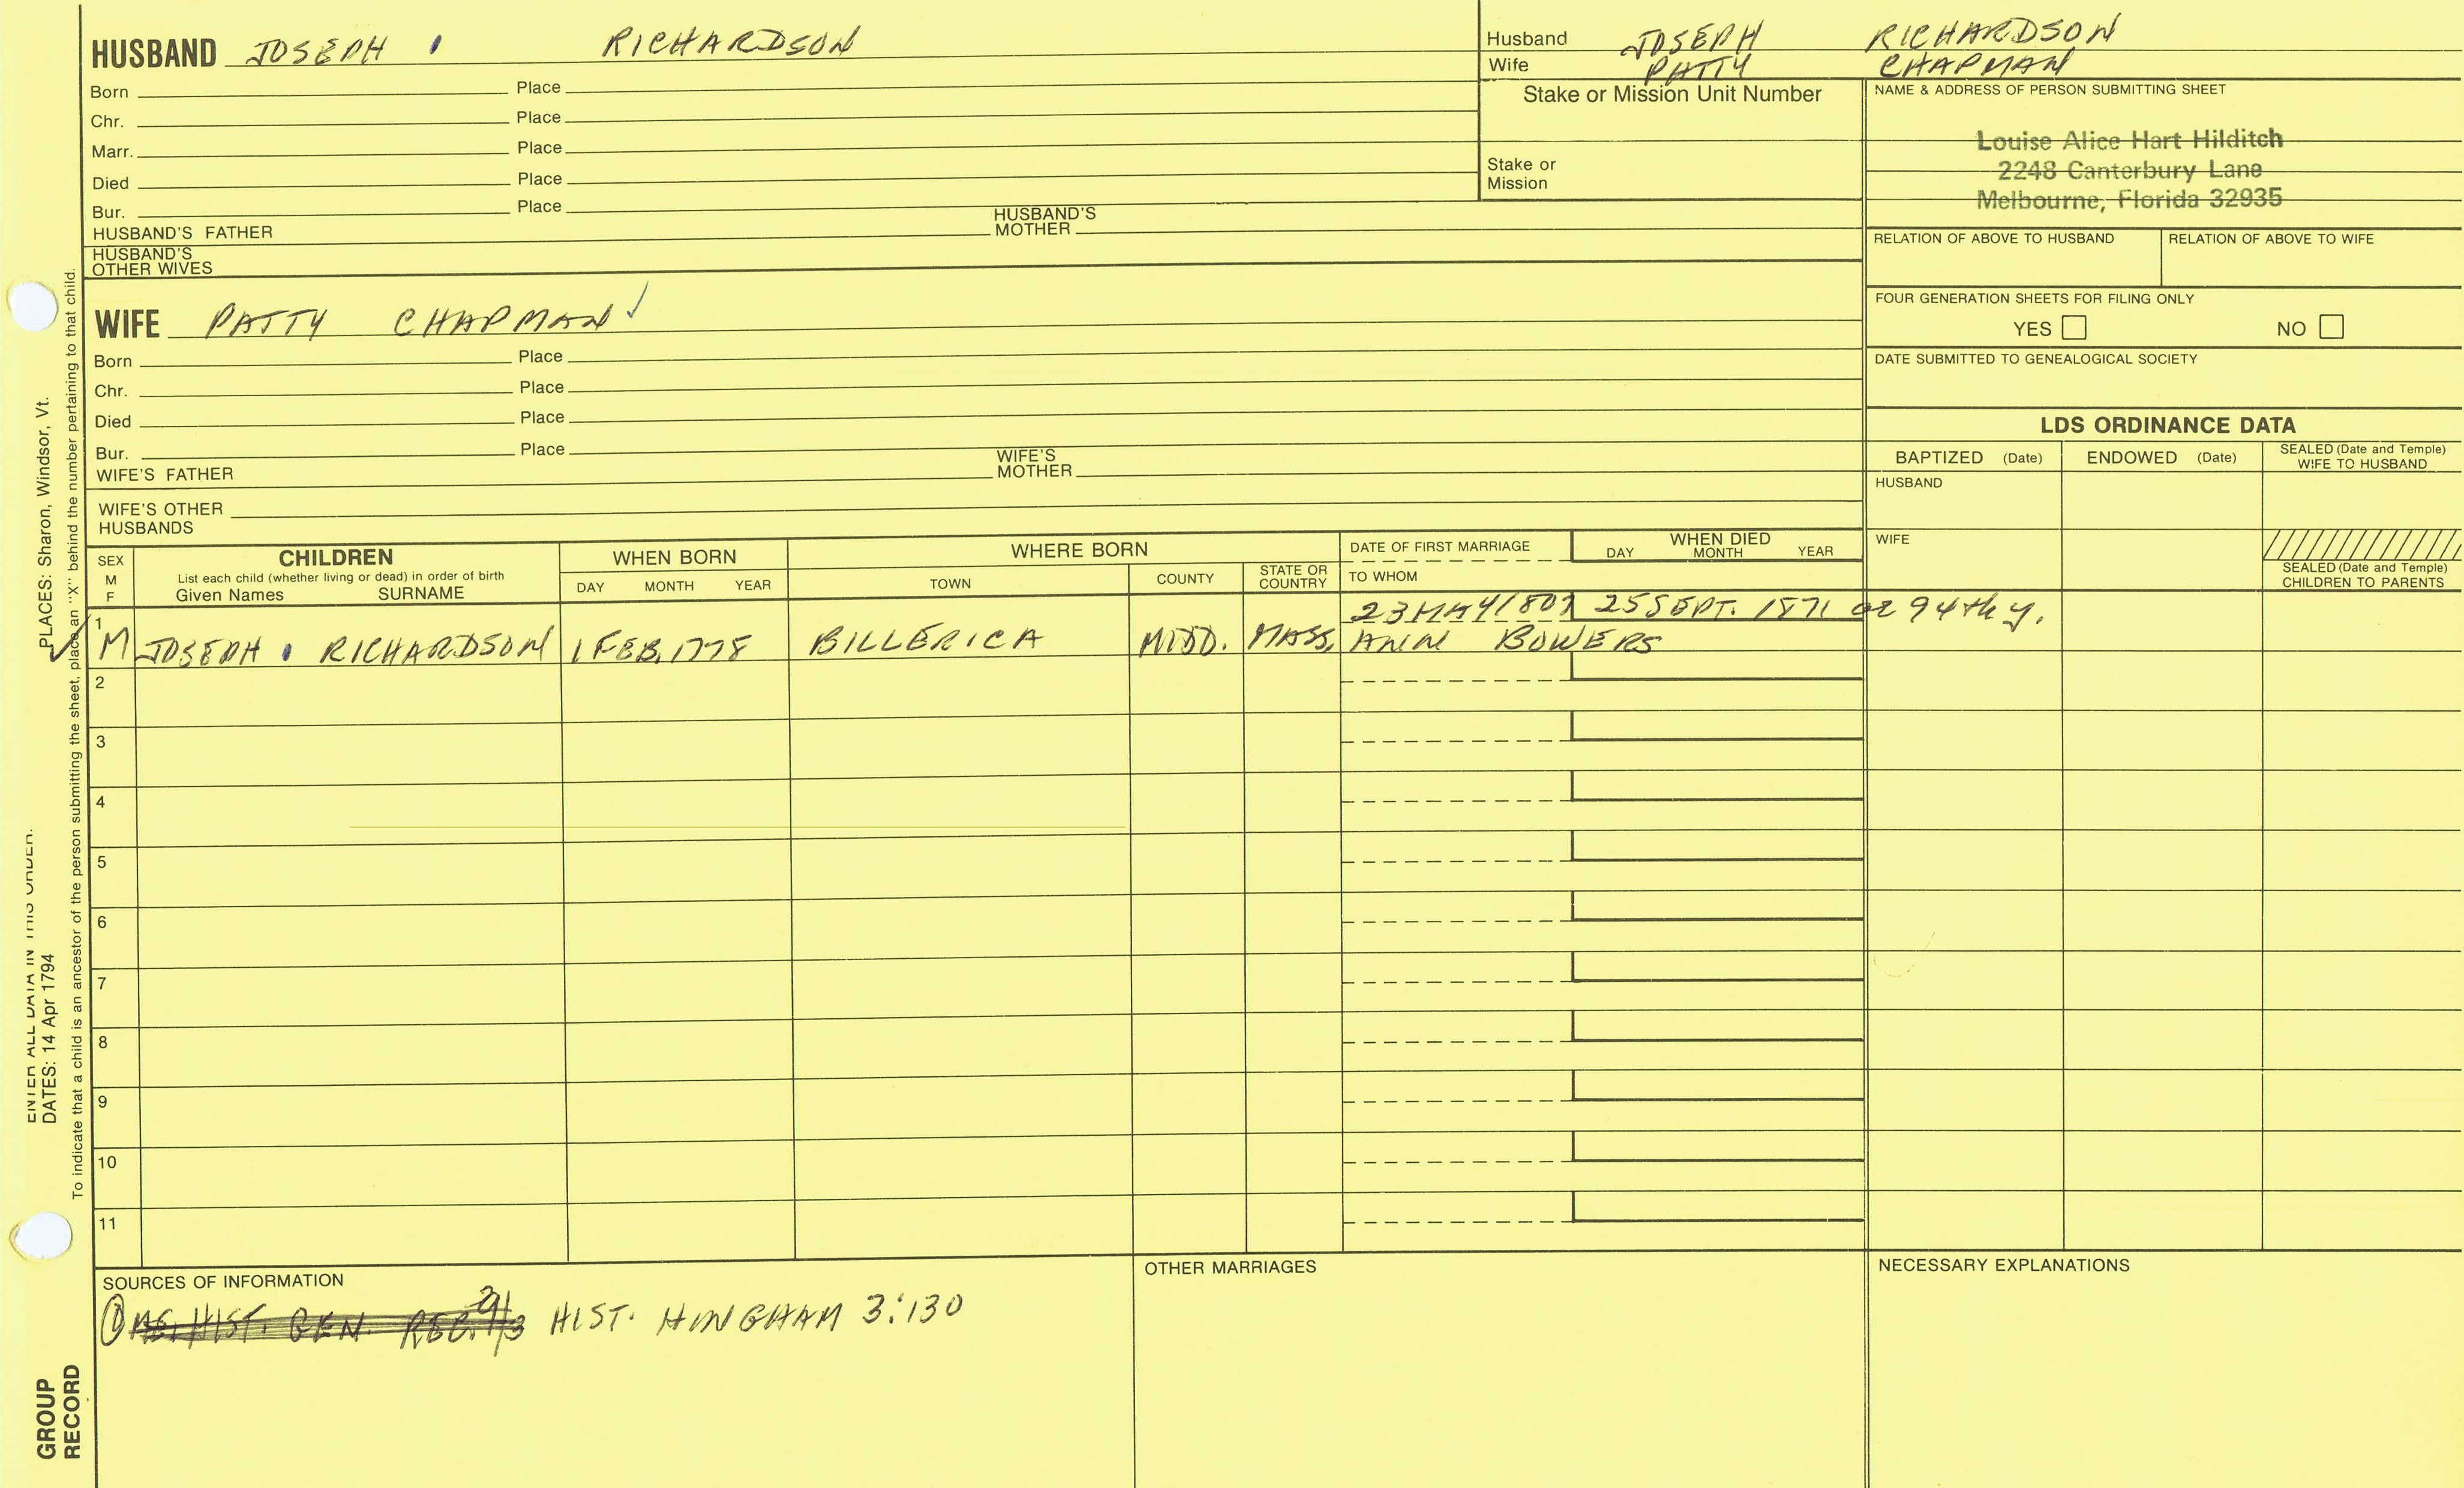 HUSBAND JOSEPH RICHARDSON
Born Place
Chr. Place
Marr. Place
Died Place
Bur. Place
HUSBAND'S FATHER HUSBAND'S MOTHER
HUSBAND'S OTHER WIVES
Husband JOSEPH RICHARDSON
Wife PATTY CHAPMAN
Stake or Mission Unit Number
Stake or
Mission
NAME & ADDRESS OF PERSON SUBMITTING SHEET
Louise Alice Hart Hilditch
2248 Canterbury Lane
Melbourne, Florida 32935
RELATION OF ABOVE TO HUSBAND RELATION OF ABOVE TO WIFE
FOUR GENERATION SHEETS FOR FILING ONLY
YES NO
DATE SUBMITTED TO GENEALOGICAL SOCIETY
WIFE PATTY CHAPMAN ✓
Born Place
Chr. Place
Died Place
Bur. Place
WIFE'S FATHER WIFE'S MOTHER
WIFE'S OTHER
HUSBANDS
LDS ORDINANCE DATA
BAPTIZED (Date) ENDOWED (Date) SEALED (Date and Temple) WIFE TO HUSBAND
HUSBAND
WIFE
SEALED (Date and Temple)
CHILDREN TO PARENTS
SEX M F
CHILDREN
List each child (whether living or dead) in order of birth
Given Names SURNAME
WHEN BORN
DAY MONTH YEAR
WHERE BORN
TOWN COUNTY STATE OR COUNTRY
DATE OF FIRST MARRIAGE
TO WHOM
WHEN DIED
DAY MONTH YEAR
1 23 MAY 25 SEPT. 1871 94th y.
✓ M JOSEPH RICHARDSON 1 FEB. 1778 BILLERICA MIDD. MASS. ANN BOWERS
2
3
4
5
6
7
8
9
10
11
SOURCES OF INFORMATION
① HIST. GEN. REG. HIST. HINGHAM 3:130
OTHER MARRIAGES
NECESSARY EXPLANATIONS
ENTER ALL DATA IN THIS ORDER:
DATES: 14 Apr 1794 PLACES: Sharon, Windsor, Vt.
To indicate that a child is an ancestor of the person submitting the sheet, place an "X" behind the number pertaining to that child.
GROUP
RECORD